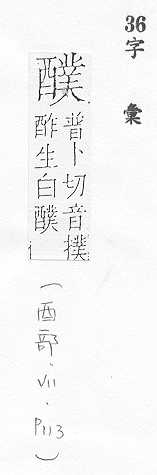 36
字彙
醭
普卜切音撲
酢生白醭
(酉部·VII·P113)